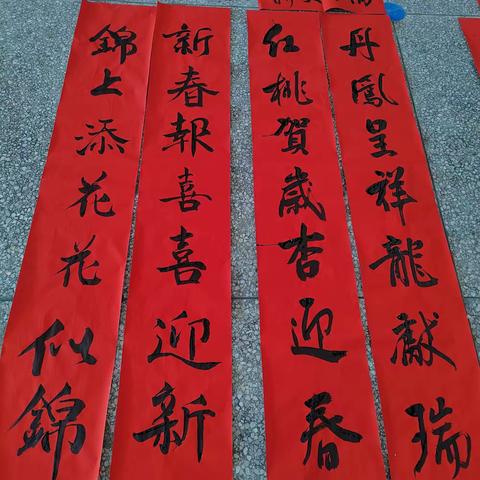 丹鳳呈祥龍獻瑞
红桃賀歲杏迎春
新春報喜喜迎新
錦上添花花似錦